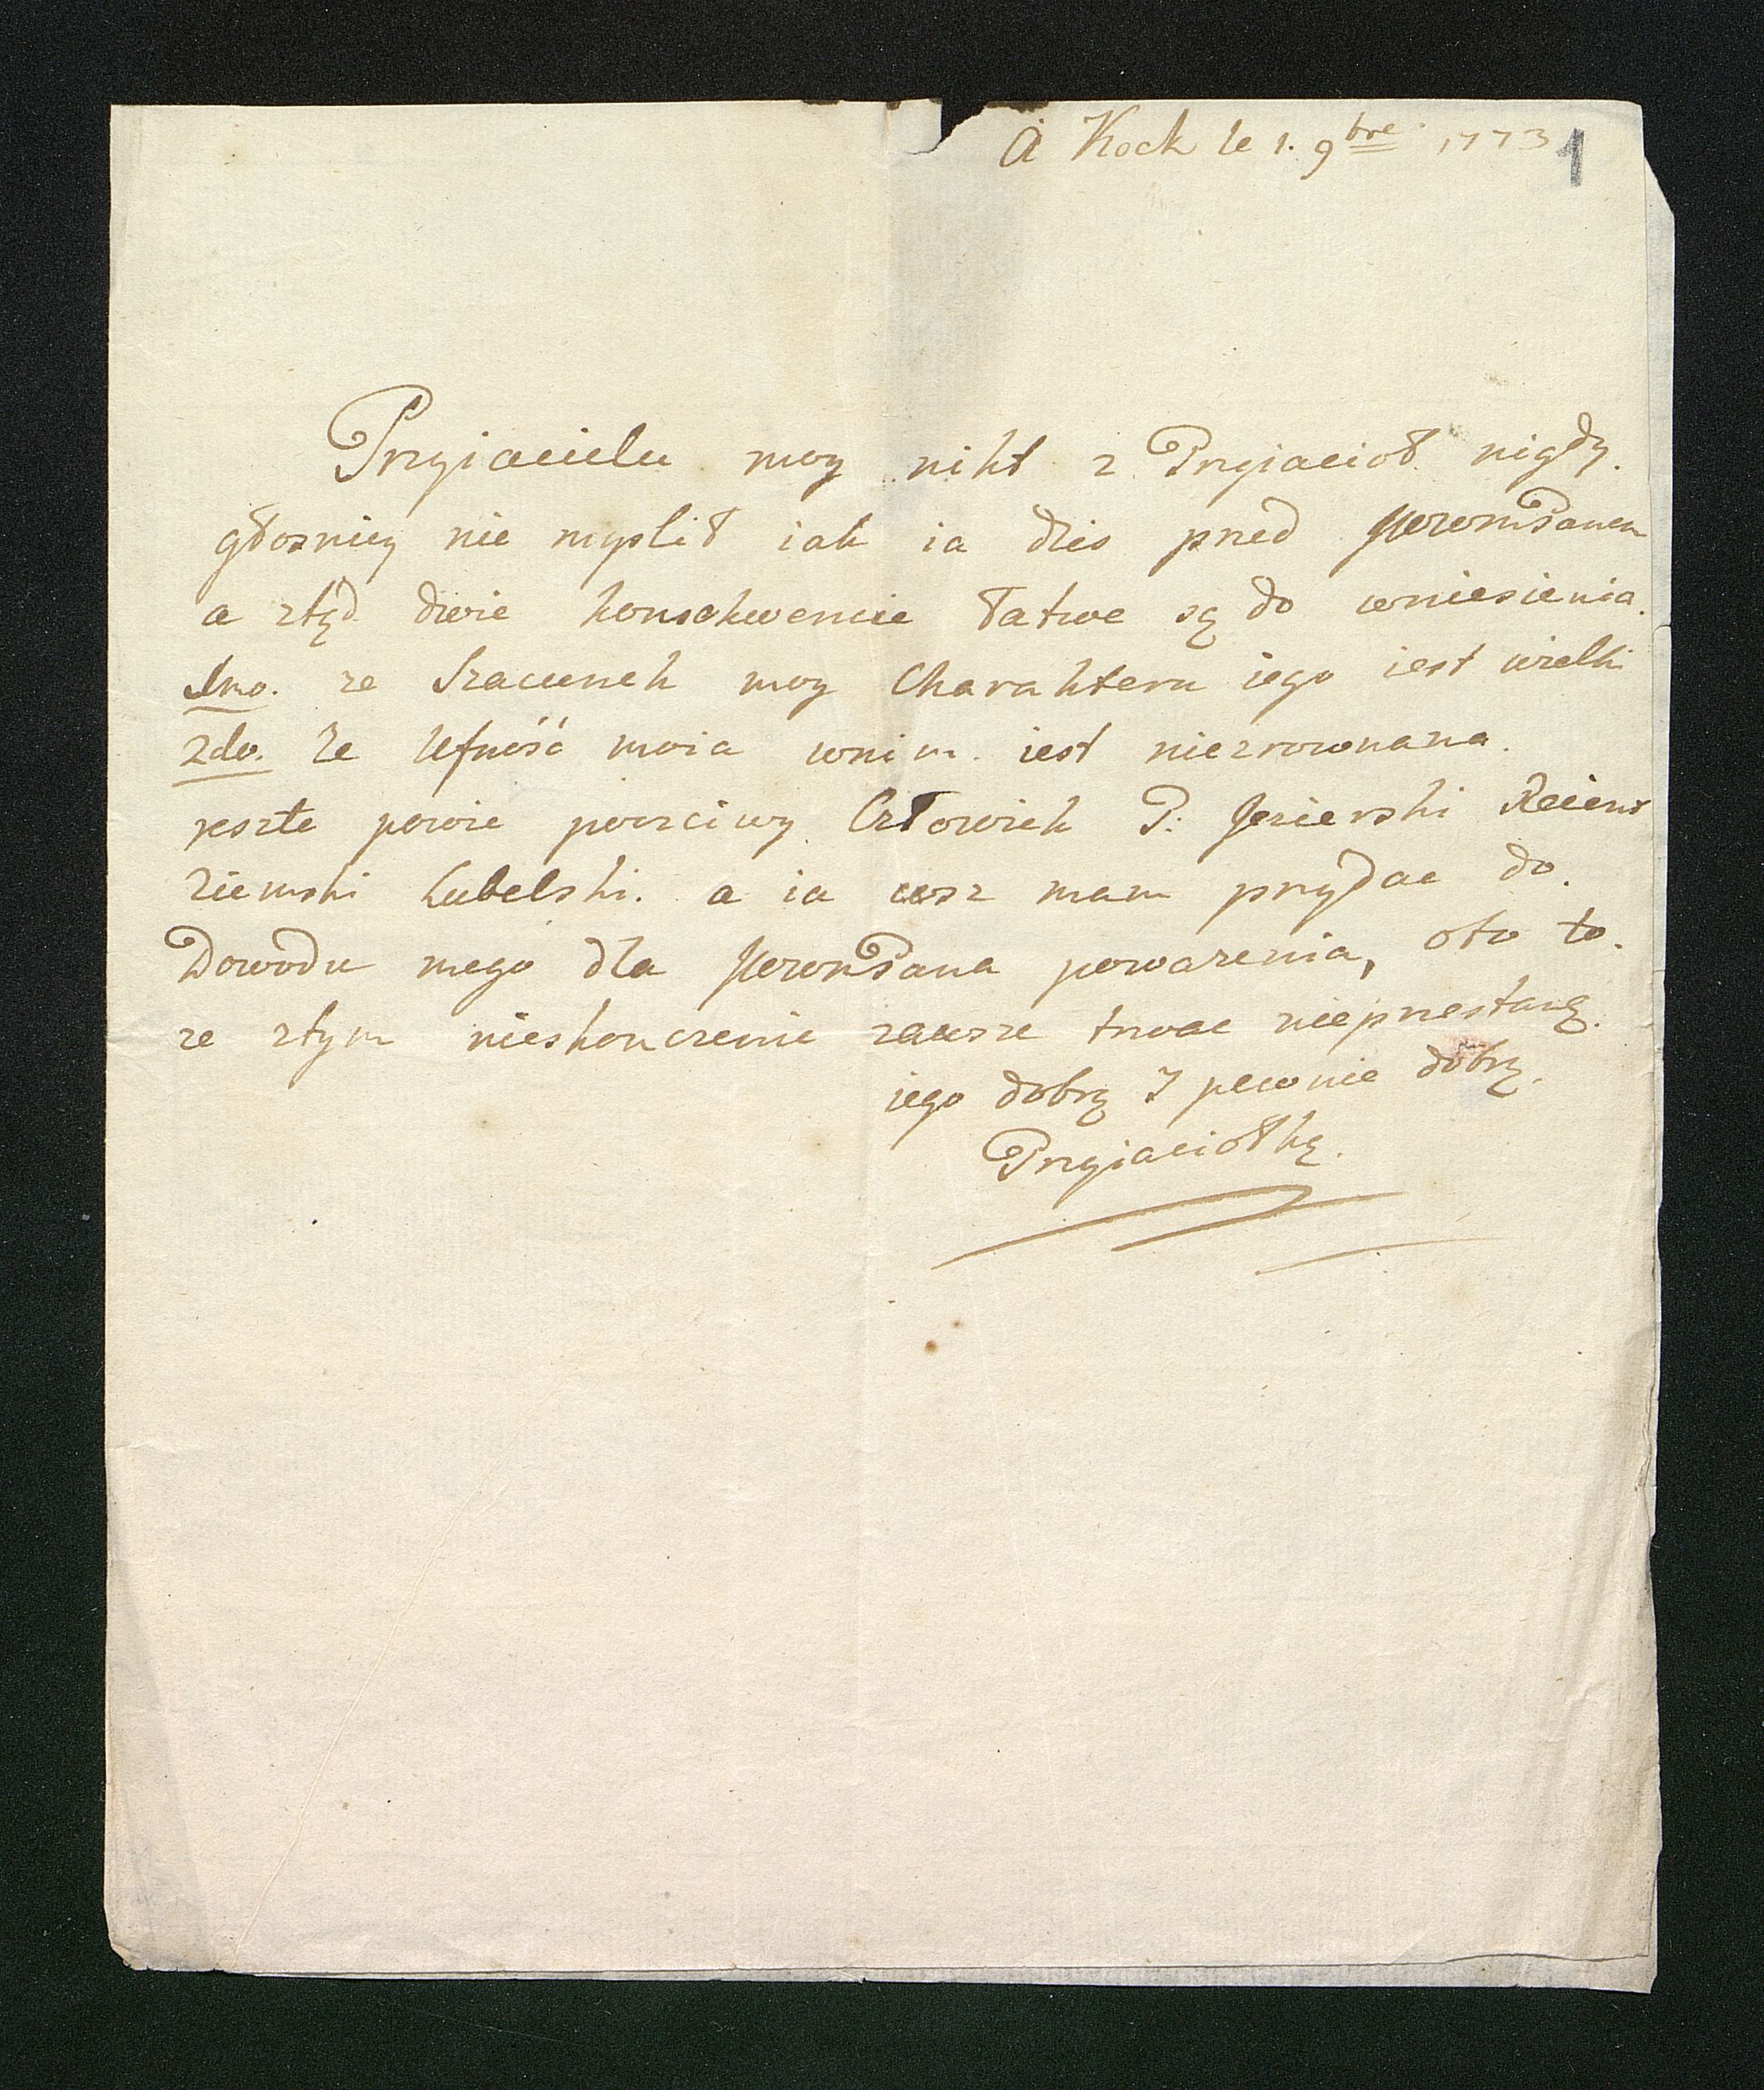 A Kock le 1. 9bre 1773
1
Przyiacielu moy nikt z Przyiacioł nigdy.
głosniey nie myslił iak ia dzis przed WWmPanem
a ztąd dwie konsekwencie łatwe są do wniesienia.
1mo. ze Szacunek moy Charakteru iego iest wielki
2do. ze Ufność moia wnim iest niezrownana.
reszte powie poczciwy Człowiek P: Jezierski Reient
Ziemski Lubelski. a ia cusz mam przydac do.
Dowodu mego dla WWmPana powazenia, oto to.
ze ztym nieskonczenie zawsze trwac nieprzestanę.
iego dobrą I pewnie dobrą.
Przyiaciołką.